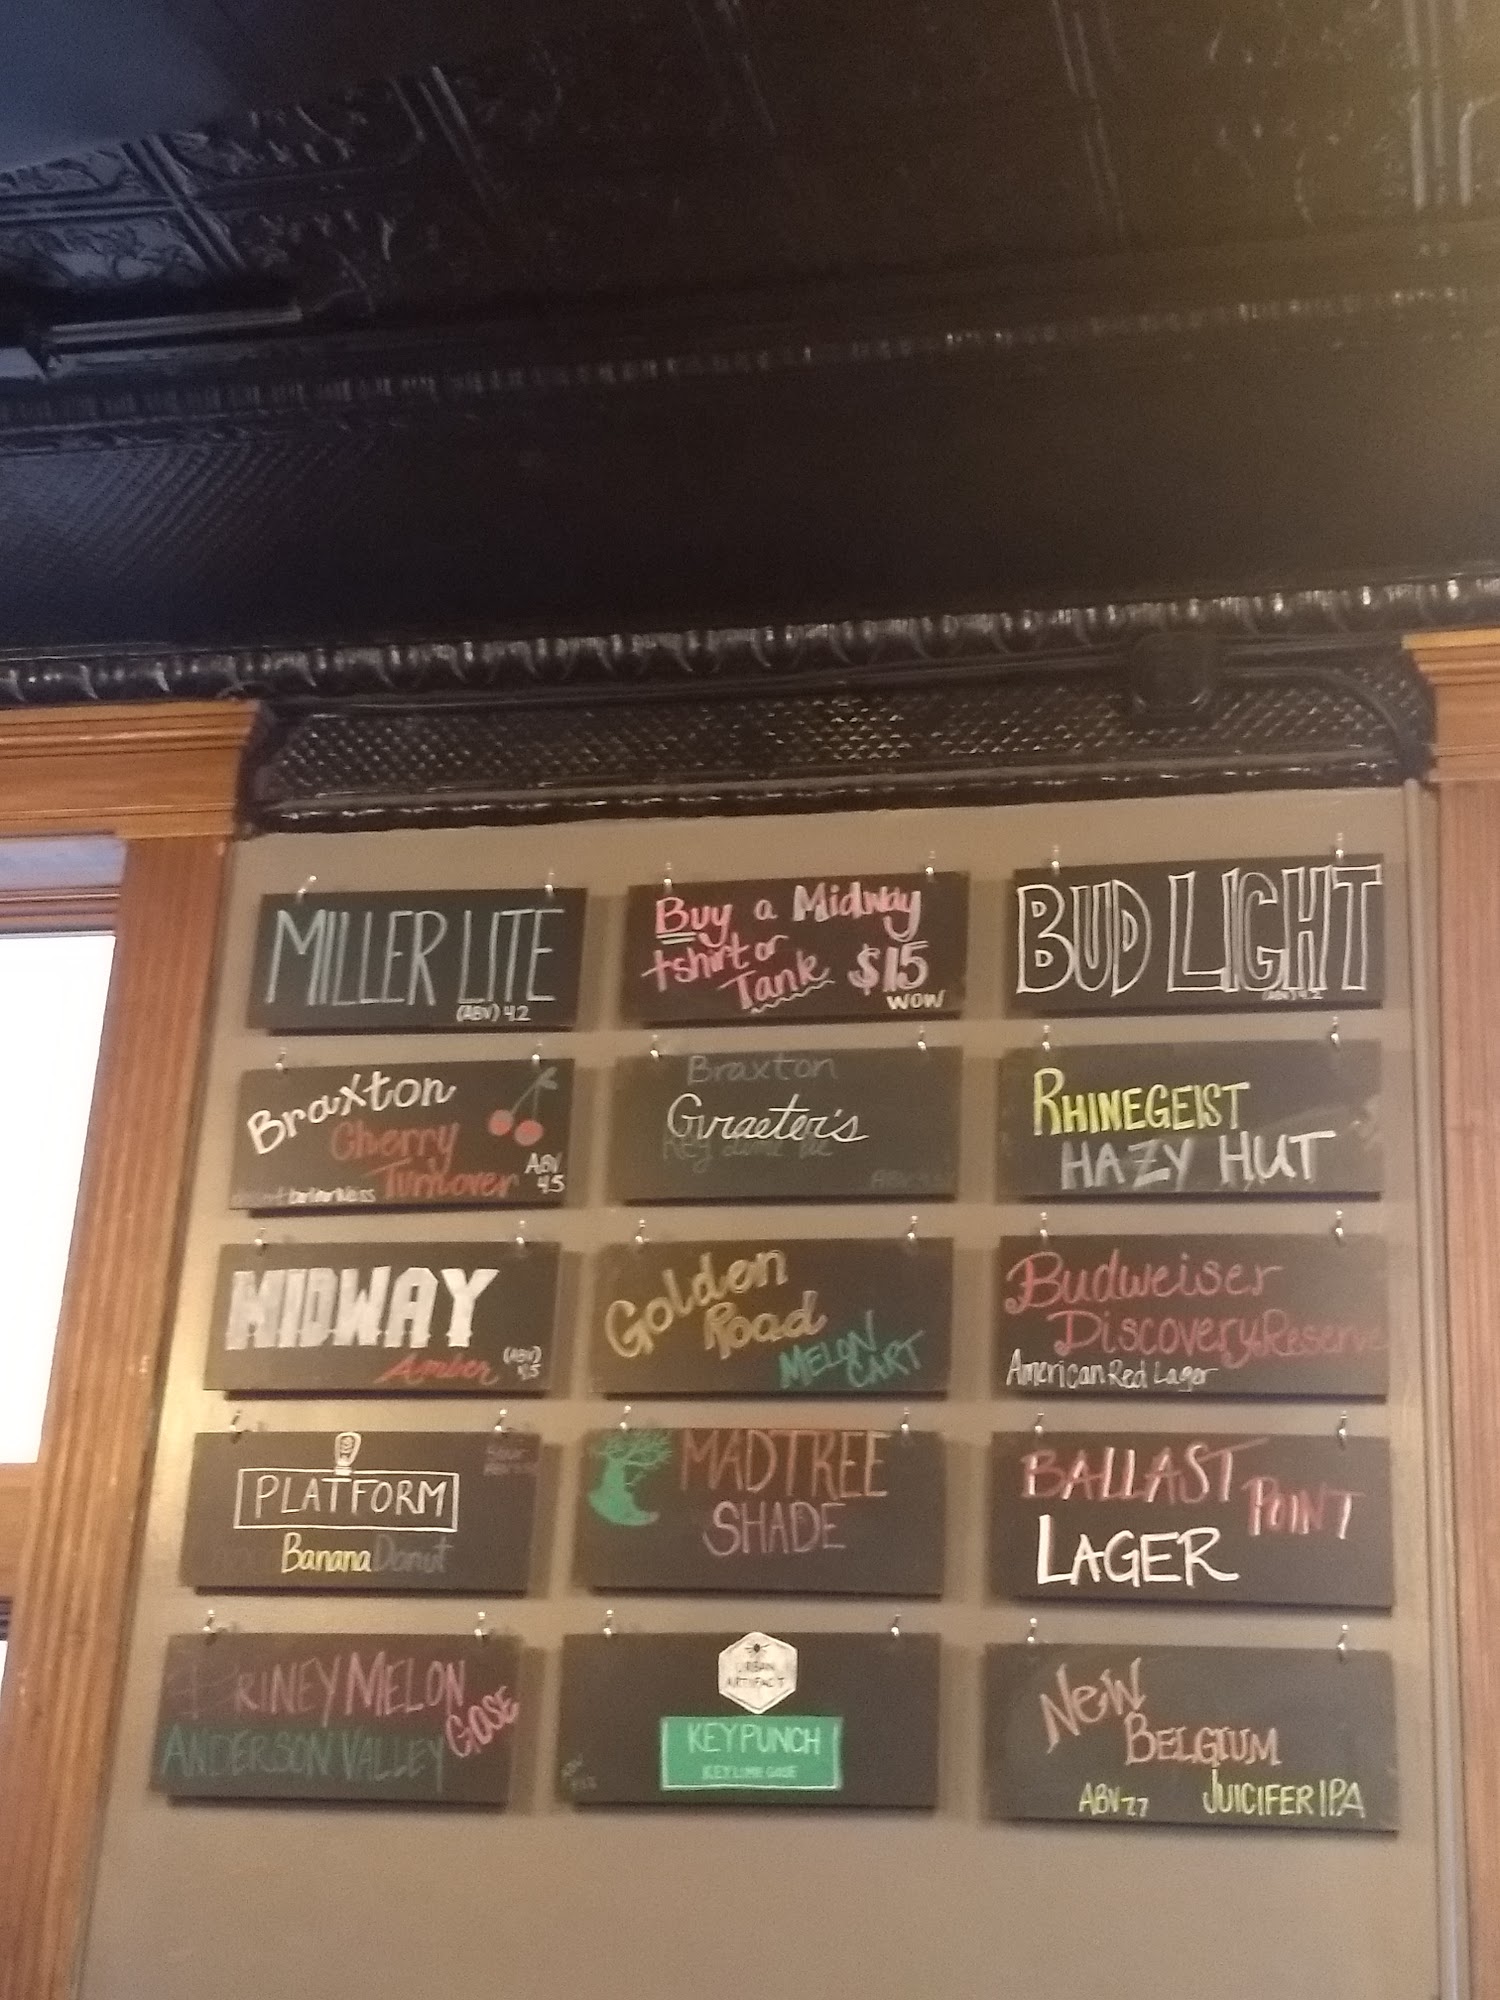 MILLER LITE
(ABV) 4.2
Buy a Midway
tshirt or
Tank $15
WOW
BUD LIGHT
(ABV) 4.2
Braxton
Cherry
Turnover
ABV
4.5
Braxton
Graeter's
Key Lime Pie
RHINEGEIST
HAZY HUT
MIDWAY
Amber
(ABV)
4.5
Golden
Road
MELON
CART
Budweiser
Discovery Reserve
American Red Lager
PLATFORM
Banana Donut
MADTREE
SHADE
BALLAST POINT
LAGER
BRINEY MELON
GOSE
ANDERSON VALLEY
URBAN
ARTIFACT
KEYPUNCH
KEY LIME GOSE
NEW
BELGIUM
ABV 7.7 JUICIFER IPA